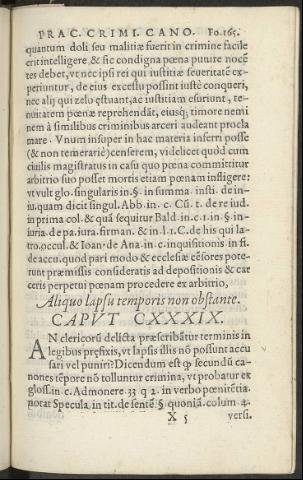 PRAC. CRIMI. CANO. Fo. 165.
quantum doli seu malitiæ fuerit in crimine facile
erit intelligere, & sic condigna pœna punire nocẽ
tes debet, vt nec ipsi rei qui iustitiæ seueritatẽ ex-
periuntur, de eius excessu possint iustè conqueri,
nec alij qui zelo estuant, ac iustitiam esuriunt, te-
nuitatem pœnæ reprehendãt, eiusq; timore nemi
nem à similibus criminibus arceri audeant procla
mare. Vnum insuper in hac materia inferri posse
(& non temerariè) censerem, videlicet quòd cum
ciuilis magistratus in casu quo pœna committitur
arbitrio suo posset mortis etiam pœnam infligere:
vt vult glo. singularis in. §. in summa. insti. de in-
iu. quam dicit singul. Abb. in. c. Cũ. t. de re iud.
in prima col. & quã sequitur Bald. in. c. 1. in §. in-
iuria. de pa. iura. firman. & in l. 1. C. de his qui la-
tro. occul. & Ioan. de Ana. in c. inquisitionis in fi.
de accu. quod pari modo & ecclesiæ cẽsores pote-
runt præmissis consideratis ad depositionis & car
ceris perpetui pœnam procedere ex arbitrio,
Aliquo lapsu temporis non obstante.
CAPVT CXXXIX.
AN clericorũ delicta præscribãtur terminis in
legibus prefixis, vt lapsis illis nõ possunt accu
sari vel puniri? Dicendum est ꝙ secundũ ca-
nones tẽpore nõ tolluntur crimina, vt probatur ex
gloss. in c. Admonere. 33 q 2. in verbo pœnitẽtia.
notat Specula. in tit. de sentẽ. §. quoniã. colum. 4.
X 5 versi.